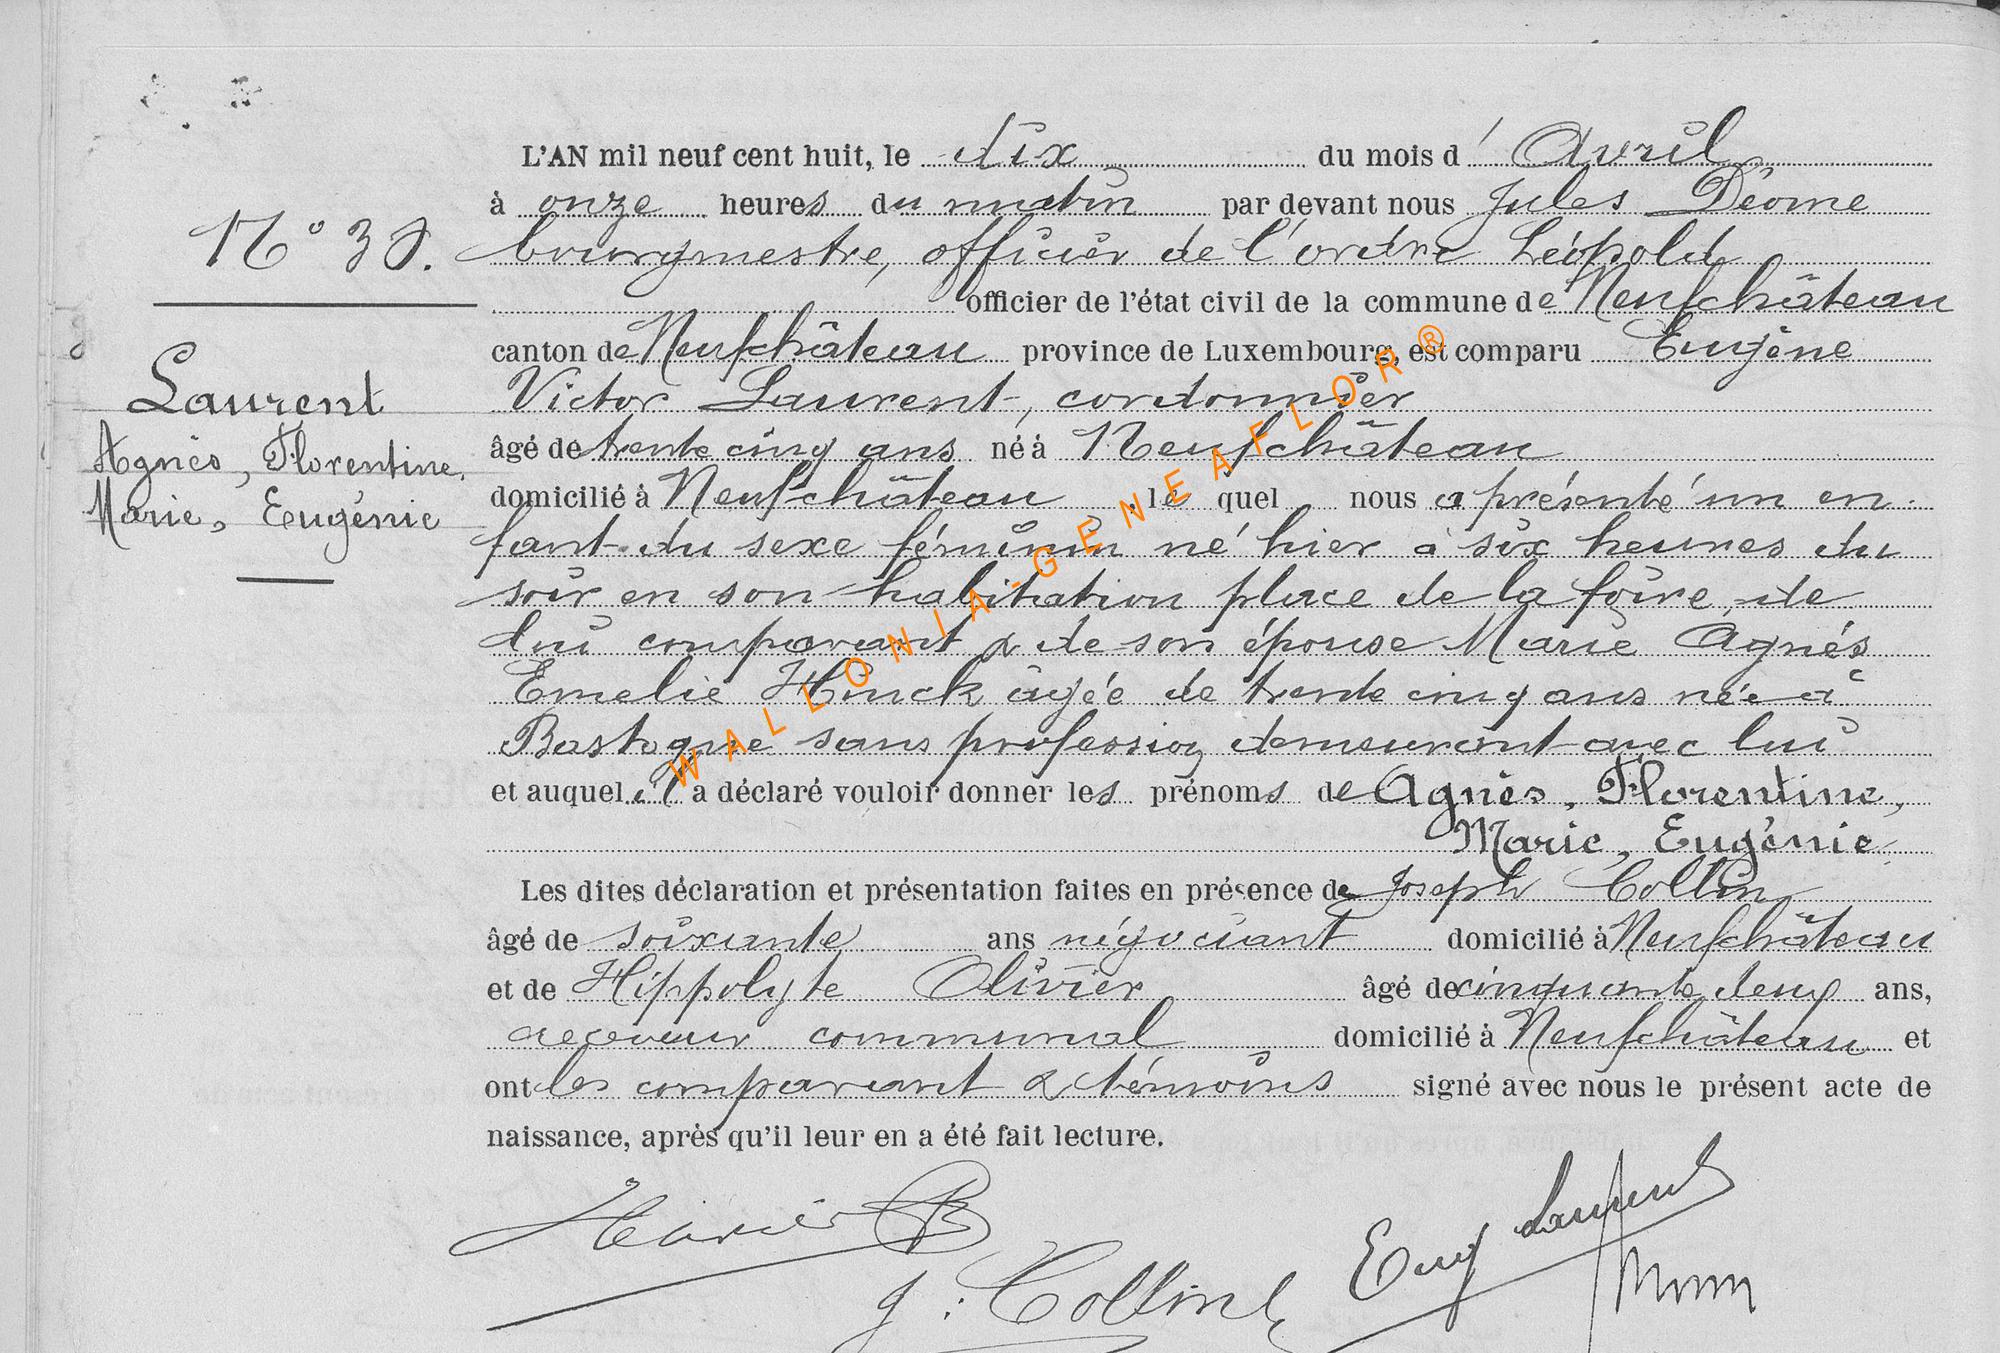 L'AN mil neuf cent huit, le dix du mois d'Avril
à onze heures du matin par devant nous Jules Déome
N° 30.
bourgmestre, officier de l'ordre Léopold
officier de l'état civil de la commune de Neufchâteau
canton de Neufchâteau province de Luxembourg, est comparu Eugène
Laurent
Agnès, Florentine,
Marie, Eugénie
Victor Laurent, cordonnier
âgé de trente cinq ans né à Neufchâteau
domicilié à Neufchâteau, lequel nous a présenté un en-
fant du sexe féminin né hier à six heures du
soir en son habitation place de la foire, de
lui comparant & de son épouse Marie Agnés
Emelie Hinck âgée de trente cinq ans née à
Bastogne sans profession demeurant avec lui
et auquel il a déclaré vouloir donner les prénoms de Agnès, Florentine,
Marie, Eugénie
Les dites déclaration et présentation faites en présence de Joseph Collin
âgé de soixante ans négociant domicilié à Neufchâteau
et de Hippolyte Olivier âgé de cinquante deux ans,
receveur communal domicilié à Neufchâteau et
ont les comparant & témoins signé avec nous le présent acte de
naissance, après qu'il leur en a été fait lecture.
Eug Laurent
J. Collin
WALLONIA-GENEAFLOR®